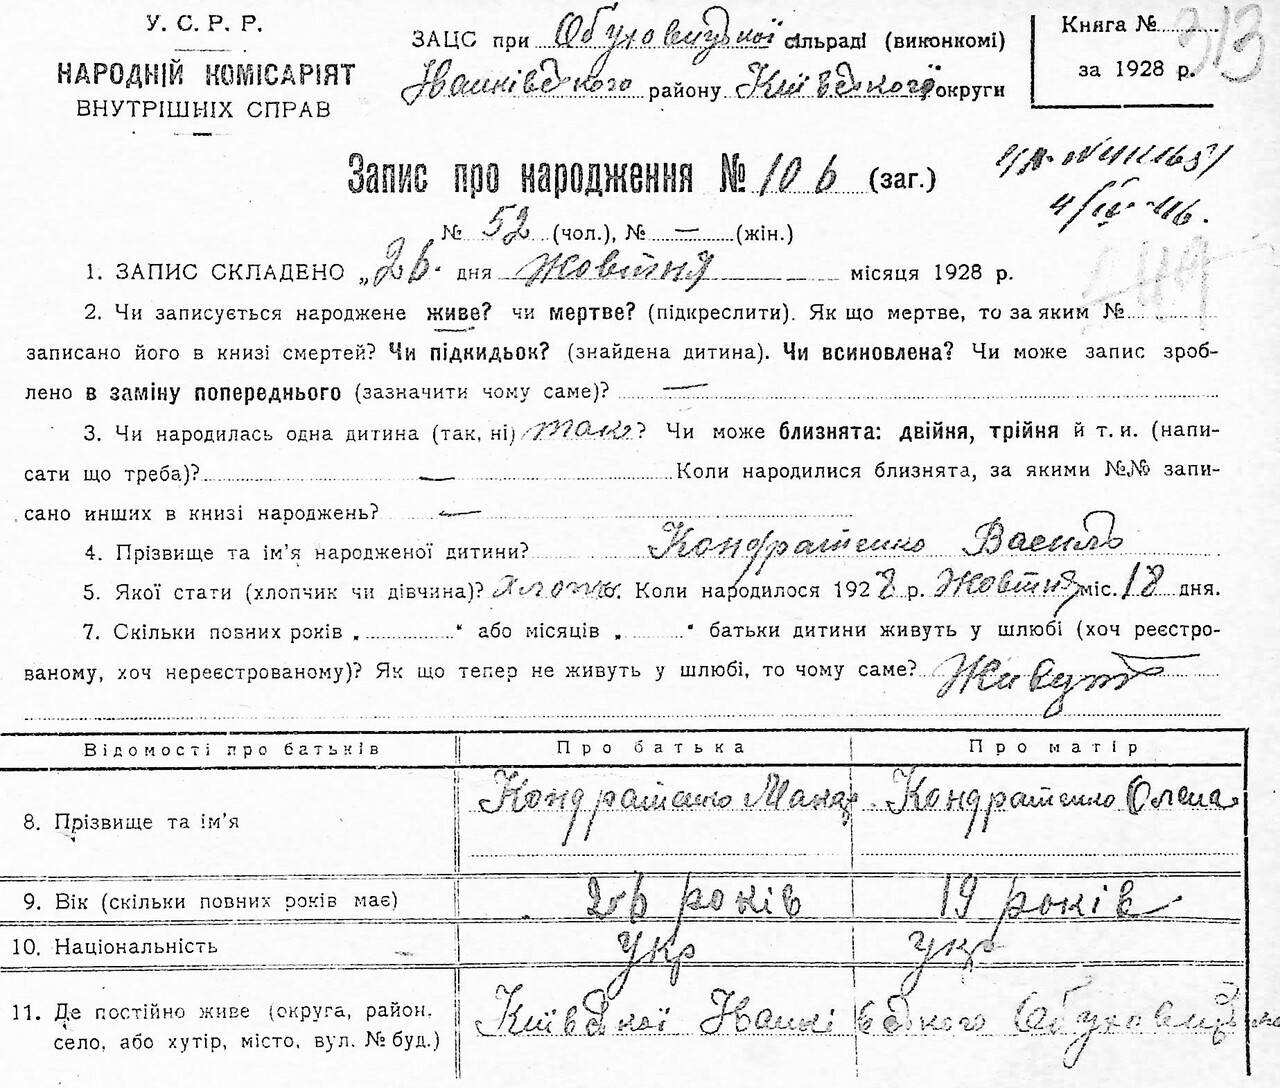 У. С. Р. Р.
НАРОДНІЙ КОМІСАРІЯТ
ВНУТРІШНІХ СПРАВ
ЗАЦС при Обуховицької сільраді (виконкомі)
Іванківського району Київської округи
Книга № 313
за 1928 р.
Запис про народження № 106 (заг.)
4/IV-46.
№ 52 (чол.), № — (жін.)
1. ЗАПИС СКЛАДЕНО „26. дня Жовтня місяця 1928 р.
2. Чи записується народжене живе? чи мертве? (підкреслити). Як що мертве, то за яким №
записано його в книзі смертей? Чи підкидьок? (знайдена дитина). Чи всиновлена? Чи може запис зроб-
лено в заміну попереднього (зазначити чому саме)? —
3. Чи народилась одна дитина (так, ні) так? Чи може близнята: двійня, трійня й т. и. (напи-
сати що треба)? — Коли народилися близнята, за якими №№ запи-
сано инших в книзі народжень? —
4. Прізвище та ім'я народженої дитини? Кондратенко Василь
5. Якої стати (хлопчик чи дівчина)? хлопч. Коли народилося 1928 р. Жовтня міс. 18 дня.
7. Скільки повних років „ “ або місяців „ “ батьки дитини живуть у шлюбі (хоч реєстро-
ваному, хоч нереєстрованому)? Як що тепер не живуть у шлюбі, то чому саме? Живуть
Відомості про батьків Про батька Про матір
8. Прізвище та ім'я Кондратенко Макар Кондратенко Олена
9. Вік (скільки повних років має) 26 років 19 років
10. Національність укр укр
11. Де постійно живе (округа, район,
село, або хутір, місто, вул. № буд.) Київської Іванківського Обуховицької